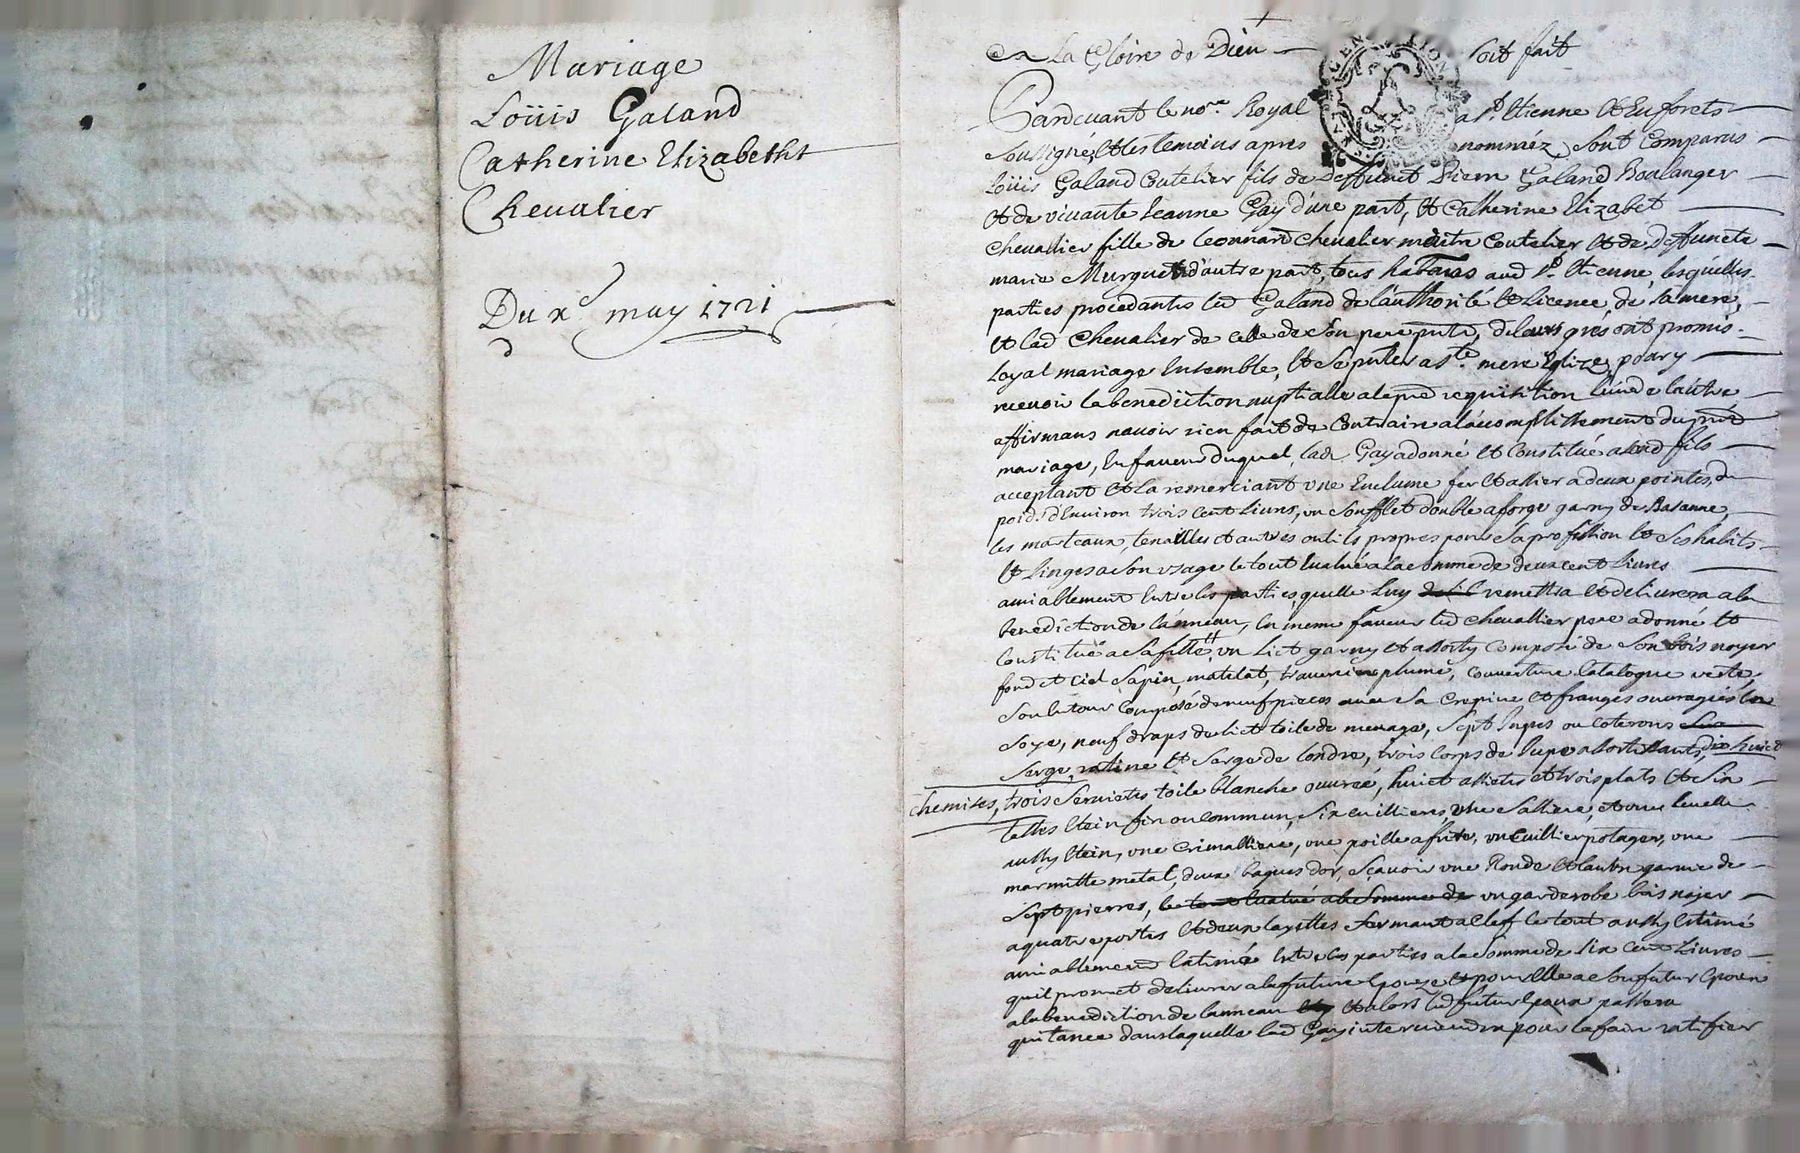 Mariage
Loüis Galand
Catherine Elizabetht
Chevalier
Du xe may 1721
A La Gloire de Dieu soit fait
Pardevant le nore Royal a St. Etienne Et Enforets
soussigné, Et les temoins apres nomméz, sont Comparus
Loüis Galand Coutelier fils de deffunct Pierre Galand Boulanger
et de vivante Jeanne Gay d'une part, Et Catherine Elizabet
Chevallier fille de Leonnard Chevalier maitre Coutelier et de deffuncte
marie Murguet d'autre part, tous habitans aud St. Etienne, lesquelles
parties procedantes led Galand de l'authorité Et Licence de sa mere,
et lad Chevalier de celle de son pere pnts, de leurs grés ont promis
Loyal mariage Ensemble, Et se pnter a ste. mere Eglize, po dicy
recevoir la benediction nuptialle a la pre requisition l'un de l'autre
affirmans navoir rien fait de Contraire a lacomplissement du pnt
mariage, En faveur duquel lade Gay a donné et Constitué a sond fils
acceptant et la remerciant une Enclume fer et assier a deux pointes, du
poid d'Environ trois cent Livres, un soufflet double a forge garny de Basanne,
les marteaux, tenailles et autres outils propres pour sa profession et ses habits
et Linges a son usage le tout Evalué a la somme de deux cent Livres
amiablement Entre les parties, quelle Luy remettra et delivrera a la
benediction de lanneau, En meme faveur led Chevallier pere a donné et
Constitué a sa fille un Lict garny et assorty Composé de son bois noyer
fond et Ciel sapin, matelat, traversier plume, Couverture Catalogne verte,
son Entour Composé de neuf pieces avec sa Crepine et franges ouvragées En
soye, neuf draps de lict toile de menage, sept Jupes ou Coterons
serge, ratine et sarge de Londre, trois Corps de Jupe assortissants, dix huict
chemises, trois serviettes toile blanche ouvrée, huict assiettes et trois plats et six
tasses Etein fin ou Commun, six cuilliers, une salliere, et une
aussy Etein, une Crimalliere, une poille a frire, un Cuillier potager, une
marmitte metal, deux bagues d'or, sçavoir une Ronde et lautre garnie de
sept pierres, le tout Evalué a la somme de un garderobe bois noyer
a quatre portes et deux layettes fermant a Clef le tout aussy Estimé
amiablement Entre les parties a la somme de six cent Livres
quil promet delivrer a la future Epouze et pour Elle a son futur Epoux
a la benediction de lanneau et alors led futur Epoux passera
quitance dans laquelle lad Gay interviendra pour la faire ratifier